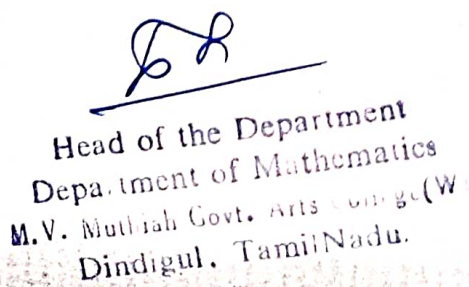 Head of the Department
Depa.tment of Mathematics
M.V. Muthiah Govt. Arts (W
Dindigul. TamilNadu.